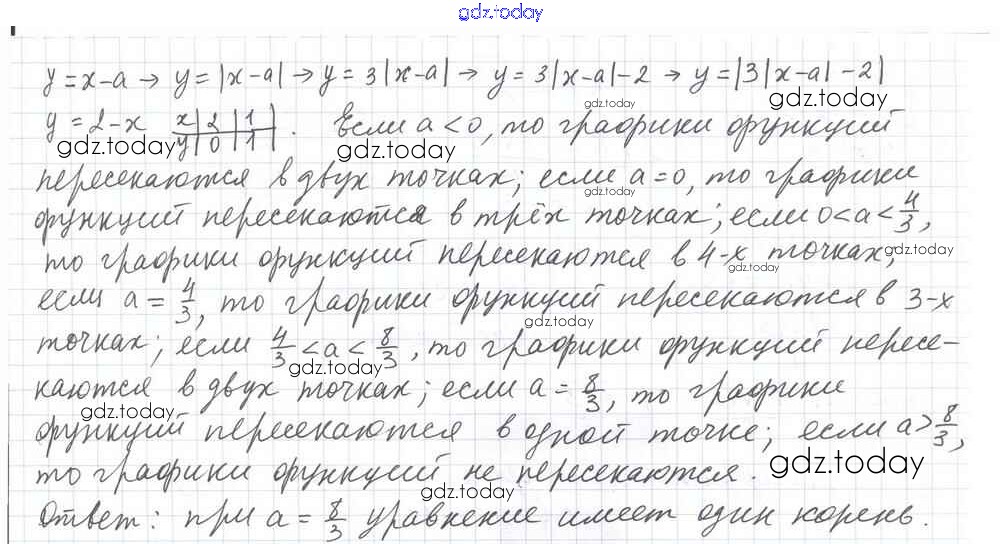 gdz.today
y = x-a → y = |x-a| → y = 3|x-a| → y = 3|x-a|-2 → y = |3|x-a|-2|
gdz.today
gdz.today
y = 2-x x|2|1| y|0|1| . Если a < 0, то графики функций
gdz.today gdz.today
пересекаются в двух точках; если a = 0, то графики
gdz.today
функций пересекаются в трёх точках; если 0 < a < 4/3,
то графики функций пересекаются в 4-х точках;
gdz.today
gdz.today
если a = 4/3, то графики функций пересекаются в 3-х
gdz.today
точках; если 4/3 < a < 8/3, то графики функций пересе-
gdz.today
каются в двух точках; если a = 8/3, то графики
gdz.today
функций пересекаются в одной точке; если a > 8/3,
то графики функций не пересекаются.
gdz.today
gdz.today
Ответ: при a = 8/3 уравнение имеет один корень.